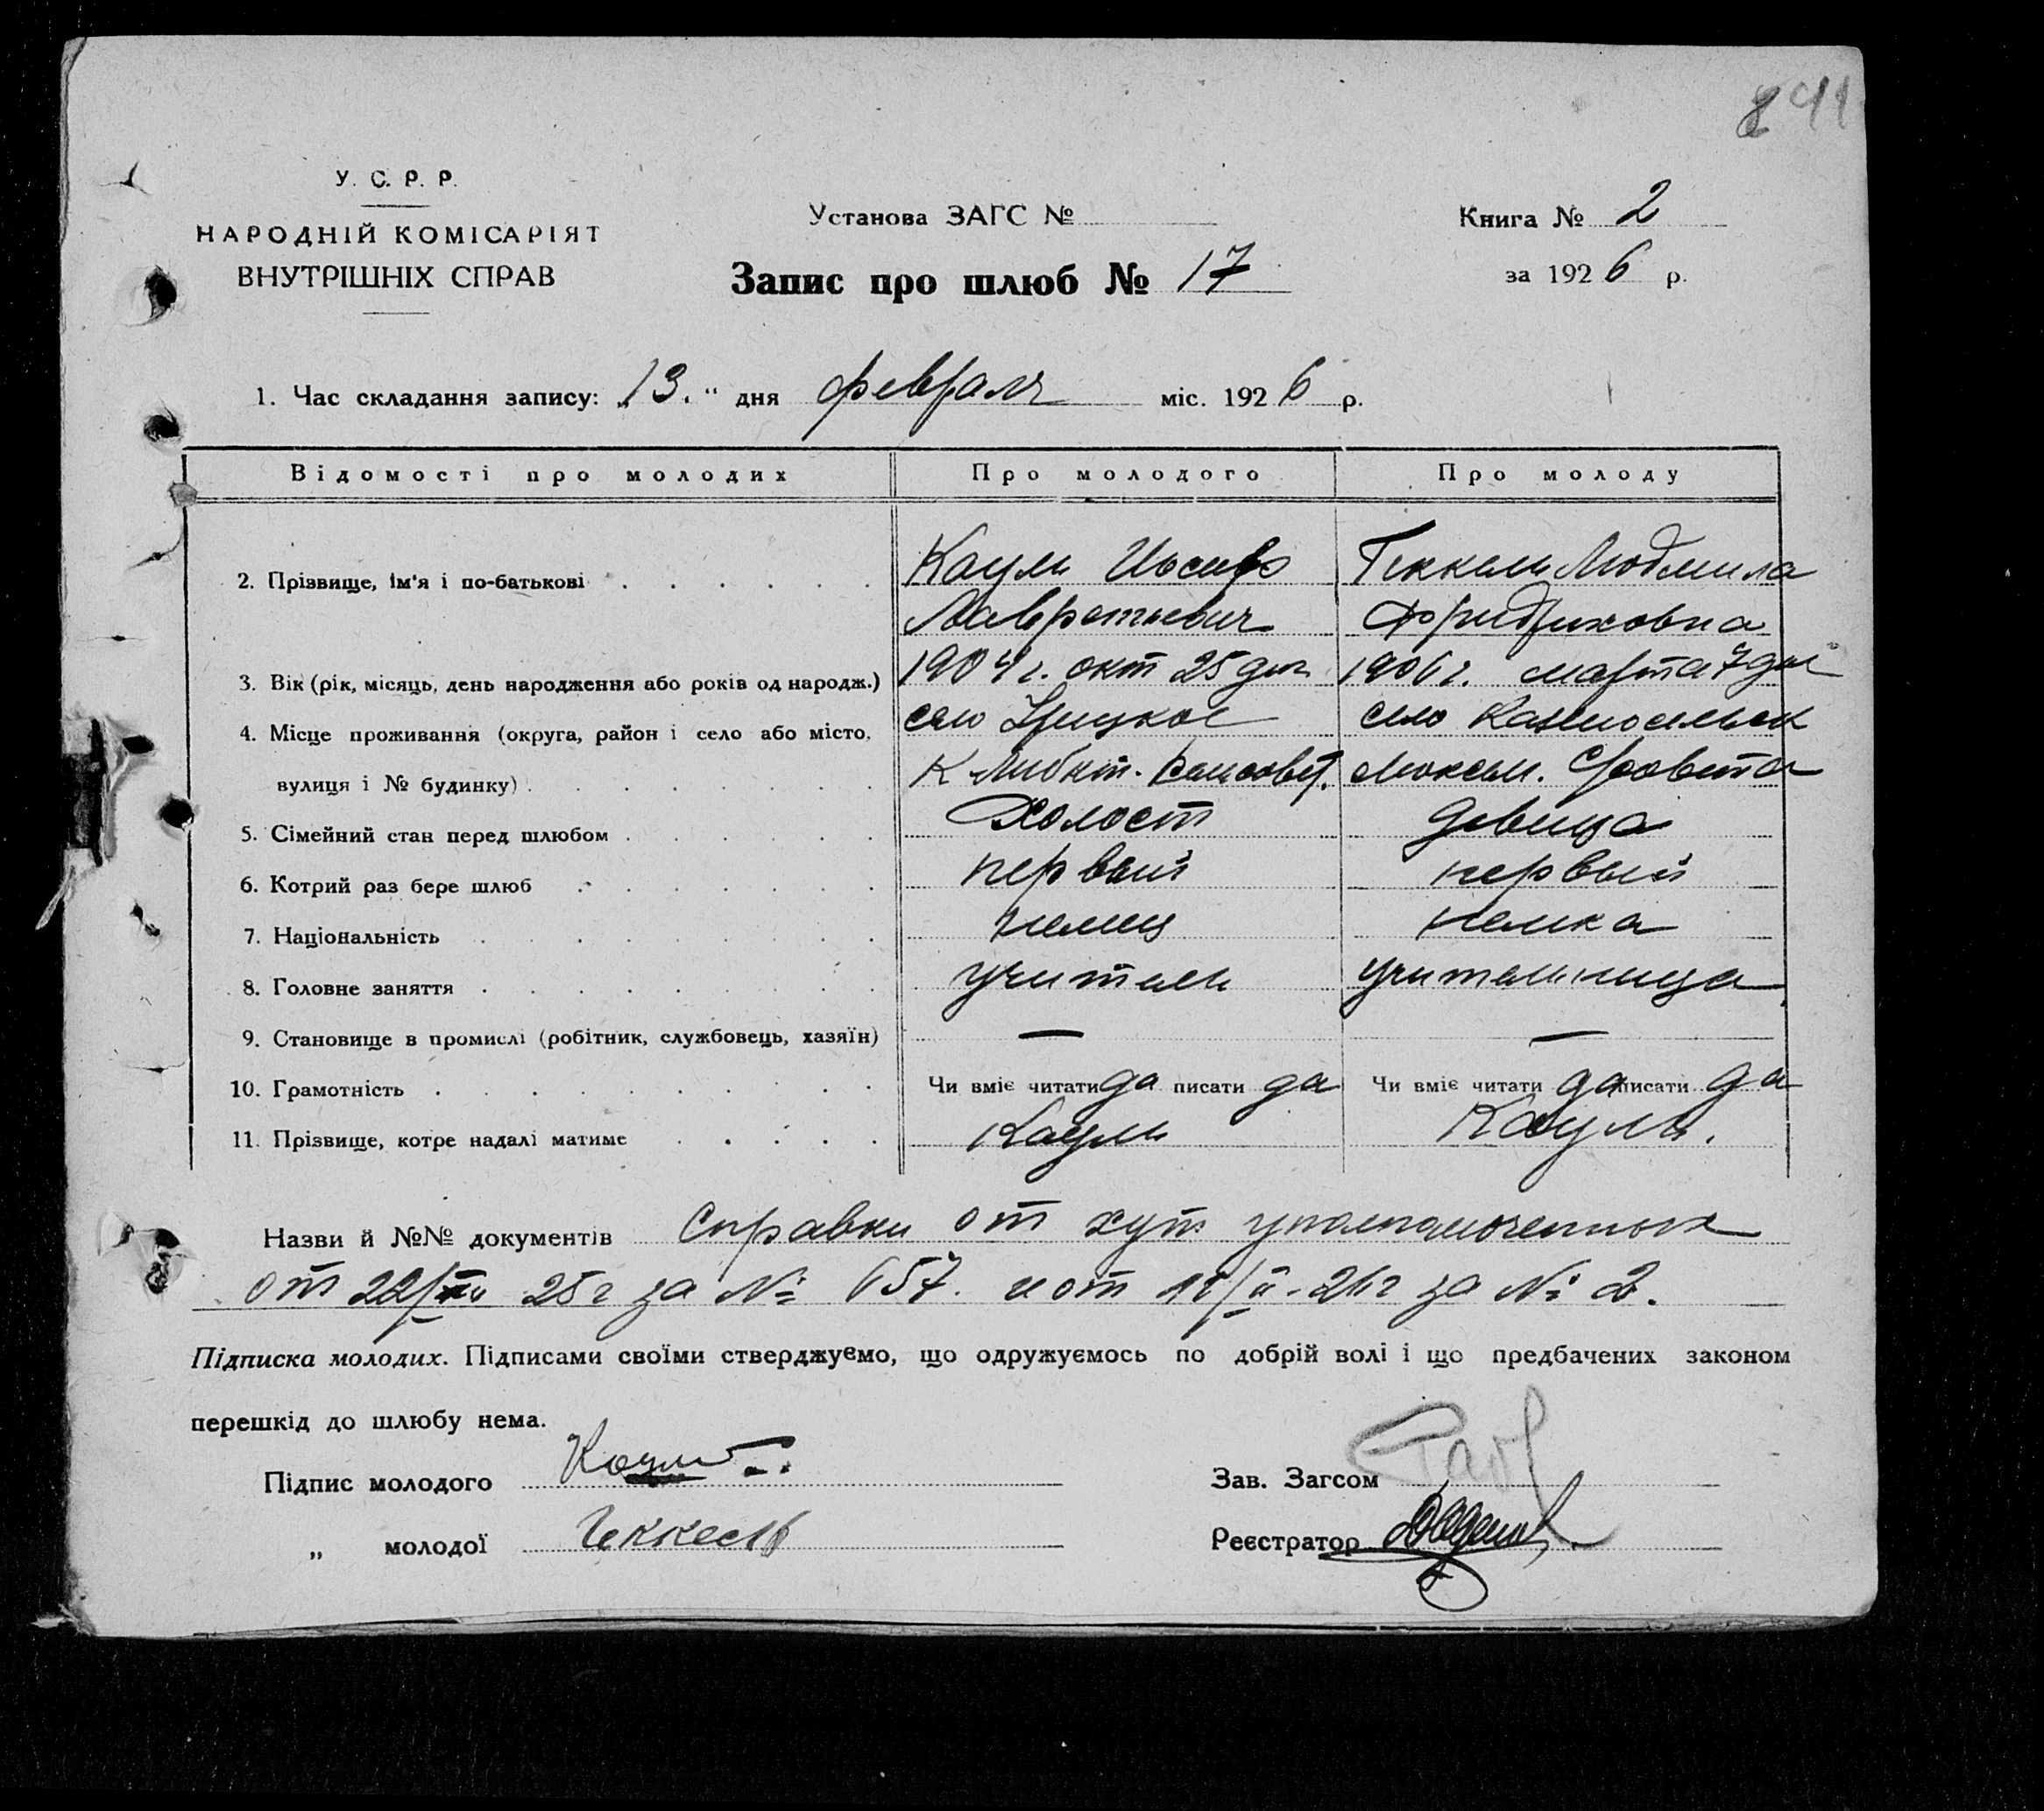 841
У. С. Р. Р.
НАРОДНІЙ КОМІСАРІЯТ
ВНУТРІШНІХ СПРАВ
Установа ЗАГС №
Запис про шлюб № 17
Книга № 2
за 1926 р.
1. Час складання запису: „13." дня февраля міс. 1926 р.
Відомості про молодих Про молодого Про молоду
2. Прізвище, ім'я і по-батькові Кауль Иосиф Геккель Людмила
Лаврентьевич Фридриховна
3. Вік (рік, місяць, день народження або років од народж.) 1904 г. окт 25 дня 1906 г. марта 7 дня
4. Місце проживання (округа, район і село або місто, село село
вулиця і № будинку) К Либкн.
5. Сімейний стан перед шлюбом Холост девица
6. Котрий раз бере шлюб первый первый
7. Національність немец немка
8. Головне заняття учитель учительница
9. Становище в промислі (робітник, службовець, хазяїн) — —
10. Грамотність Чи вміє читати да писати да Чи вміє читати да писати да
11. Прізвище, котре надалі матиме Кауль Кауль.
Назви й №№ документів Справки от хут уполномоченных
от 22/ 25 г за № 657. и от 11/II-26 г за № 2.
Підписка молодих. Підписами своїми стверджуємо, що одружуємось по добрій волі і що предбачених законом
перешкід до шлюбу нема.
Підпис молодого Кауль
Зав. Загсом
„ молодої Геккель
Реєстратор